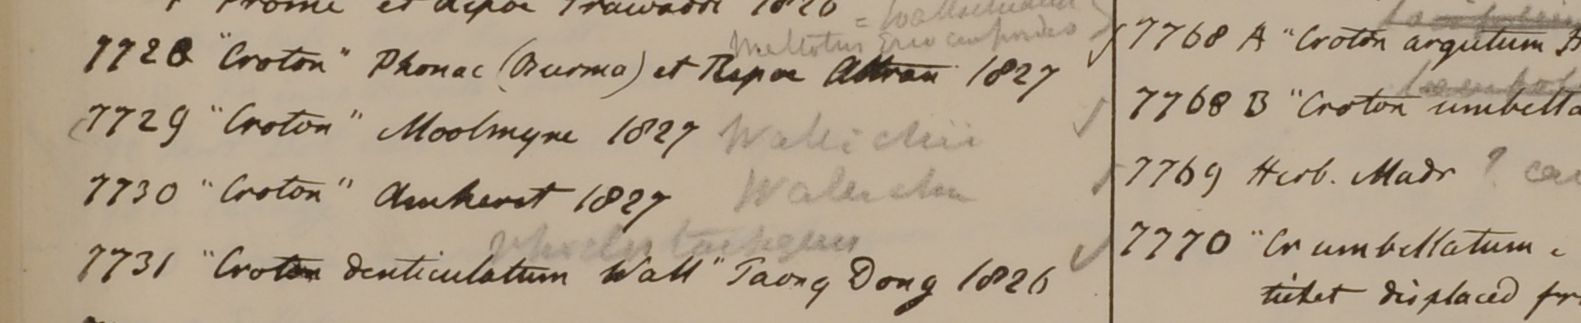 Prome et Ripoe Irawaddi 1826
Mallotus
7728 "Croton" Phonac (Burma) et Ripoe Attran 1827
7729 "Croton" Moolmyne 1827 Wallichii
7730 "Croton" Amherst 1827 Wallichii
7731 "Croton denticulatum Wall" Taong Dong 1826
7768 A "Croton argutum
7768 B "Croton umbella
7769 Herb. Madr ?
7770 "Cr umbellatum
ticket displaced fr